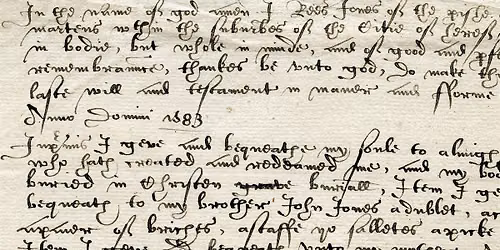 In the name of god amen I Rees Jones of the pishe
martens within the suburbes of the Citie of heref
in bodie, but whole in minde, and of good and pfe
remembrannce, thankes be vnto god, do make th
laste will and testament in maner and fforme
Anno Domini 1583
Inprimis I geve and bequeathe my soule to almigh
who hath created and reddamed me, and my bod
buried in Christen buriall, Item I g
bequeath to my brother John Jones a dublet, a
of briches, a staffe
Item I geve &amp; bequeath vnto my